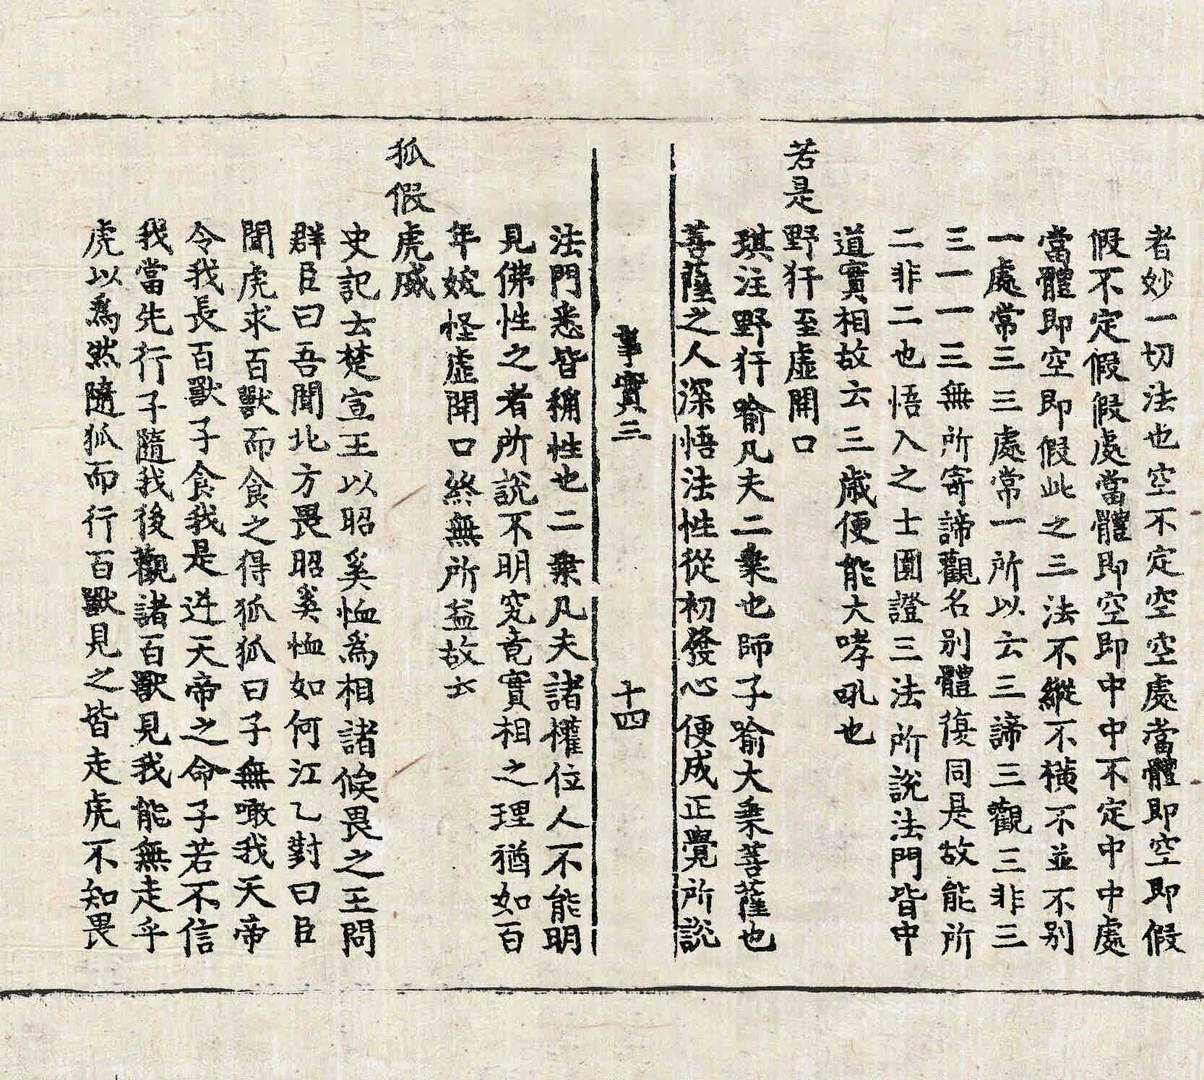 者妙一切法也空不定空空處當體即空即假
假不定假假處當體即空即中中不定中中處
當體即空即假此之三法不縱不橫不並不別
一處常三三處常一所以云三諦三觀三非三
三一一三無所寄諦觀名別體復同是故能所
二非二也悟入之士圓證三法所說法門皆中
道實相故云三歲便能大哮吼也
若是野犴至虛開口
琪注野犴喻凡夫二乘也師子喻大乘菩薩也
菩薩之人深悟法性從初發心便成正覺所說
事實三 十四
法門悉皆稱性也二乘凡夫諸權位人不能明
見佛性之者所說不明究竟實相之理猶如百
年妖怪虛開口終無所益故云
狐假虎威
史記云楚宣王以昭奚恤為相諸侯畏之王問
群臣曰吾聞北方畏昭奚恤如何江乙對曰臣
聞虎求百獸而食之得狐狐曰子無噉我天帝
令我長百獸子食我是逆天帝之命子若不信
我當先行子隨我後觀諸百獸見我能無走乎
虎以為然隨狐而行百獸見之皆走虎不知畏